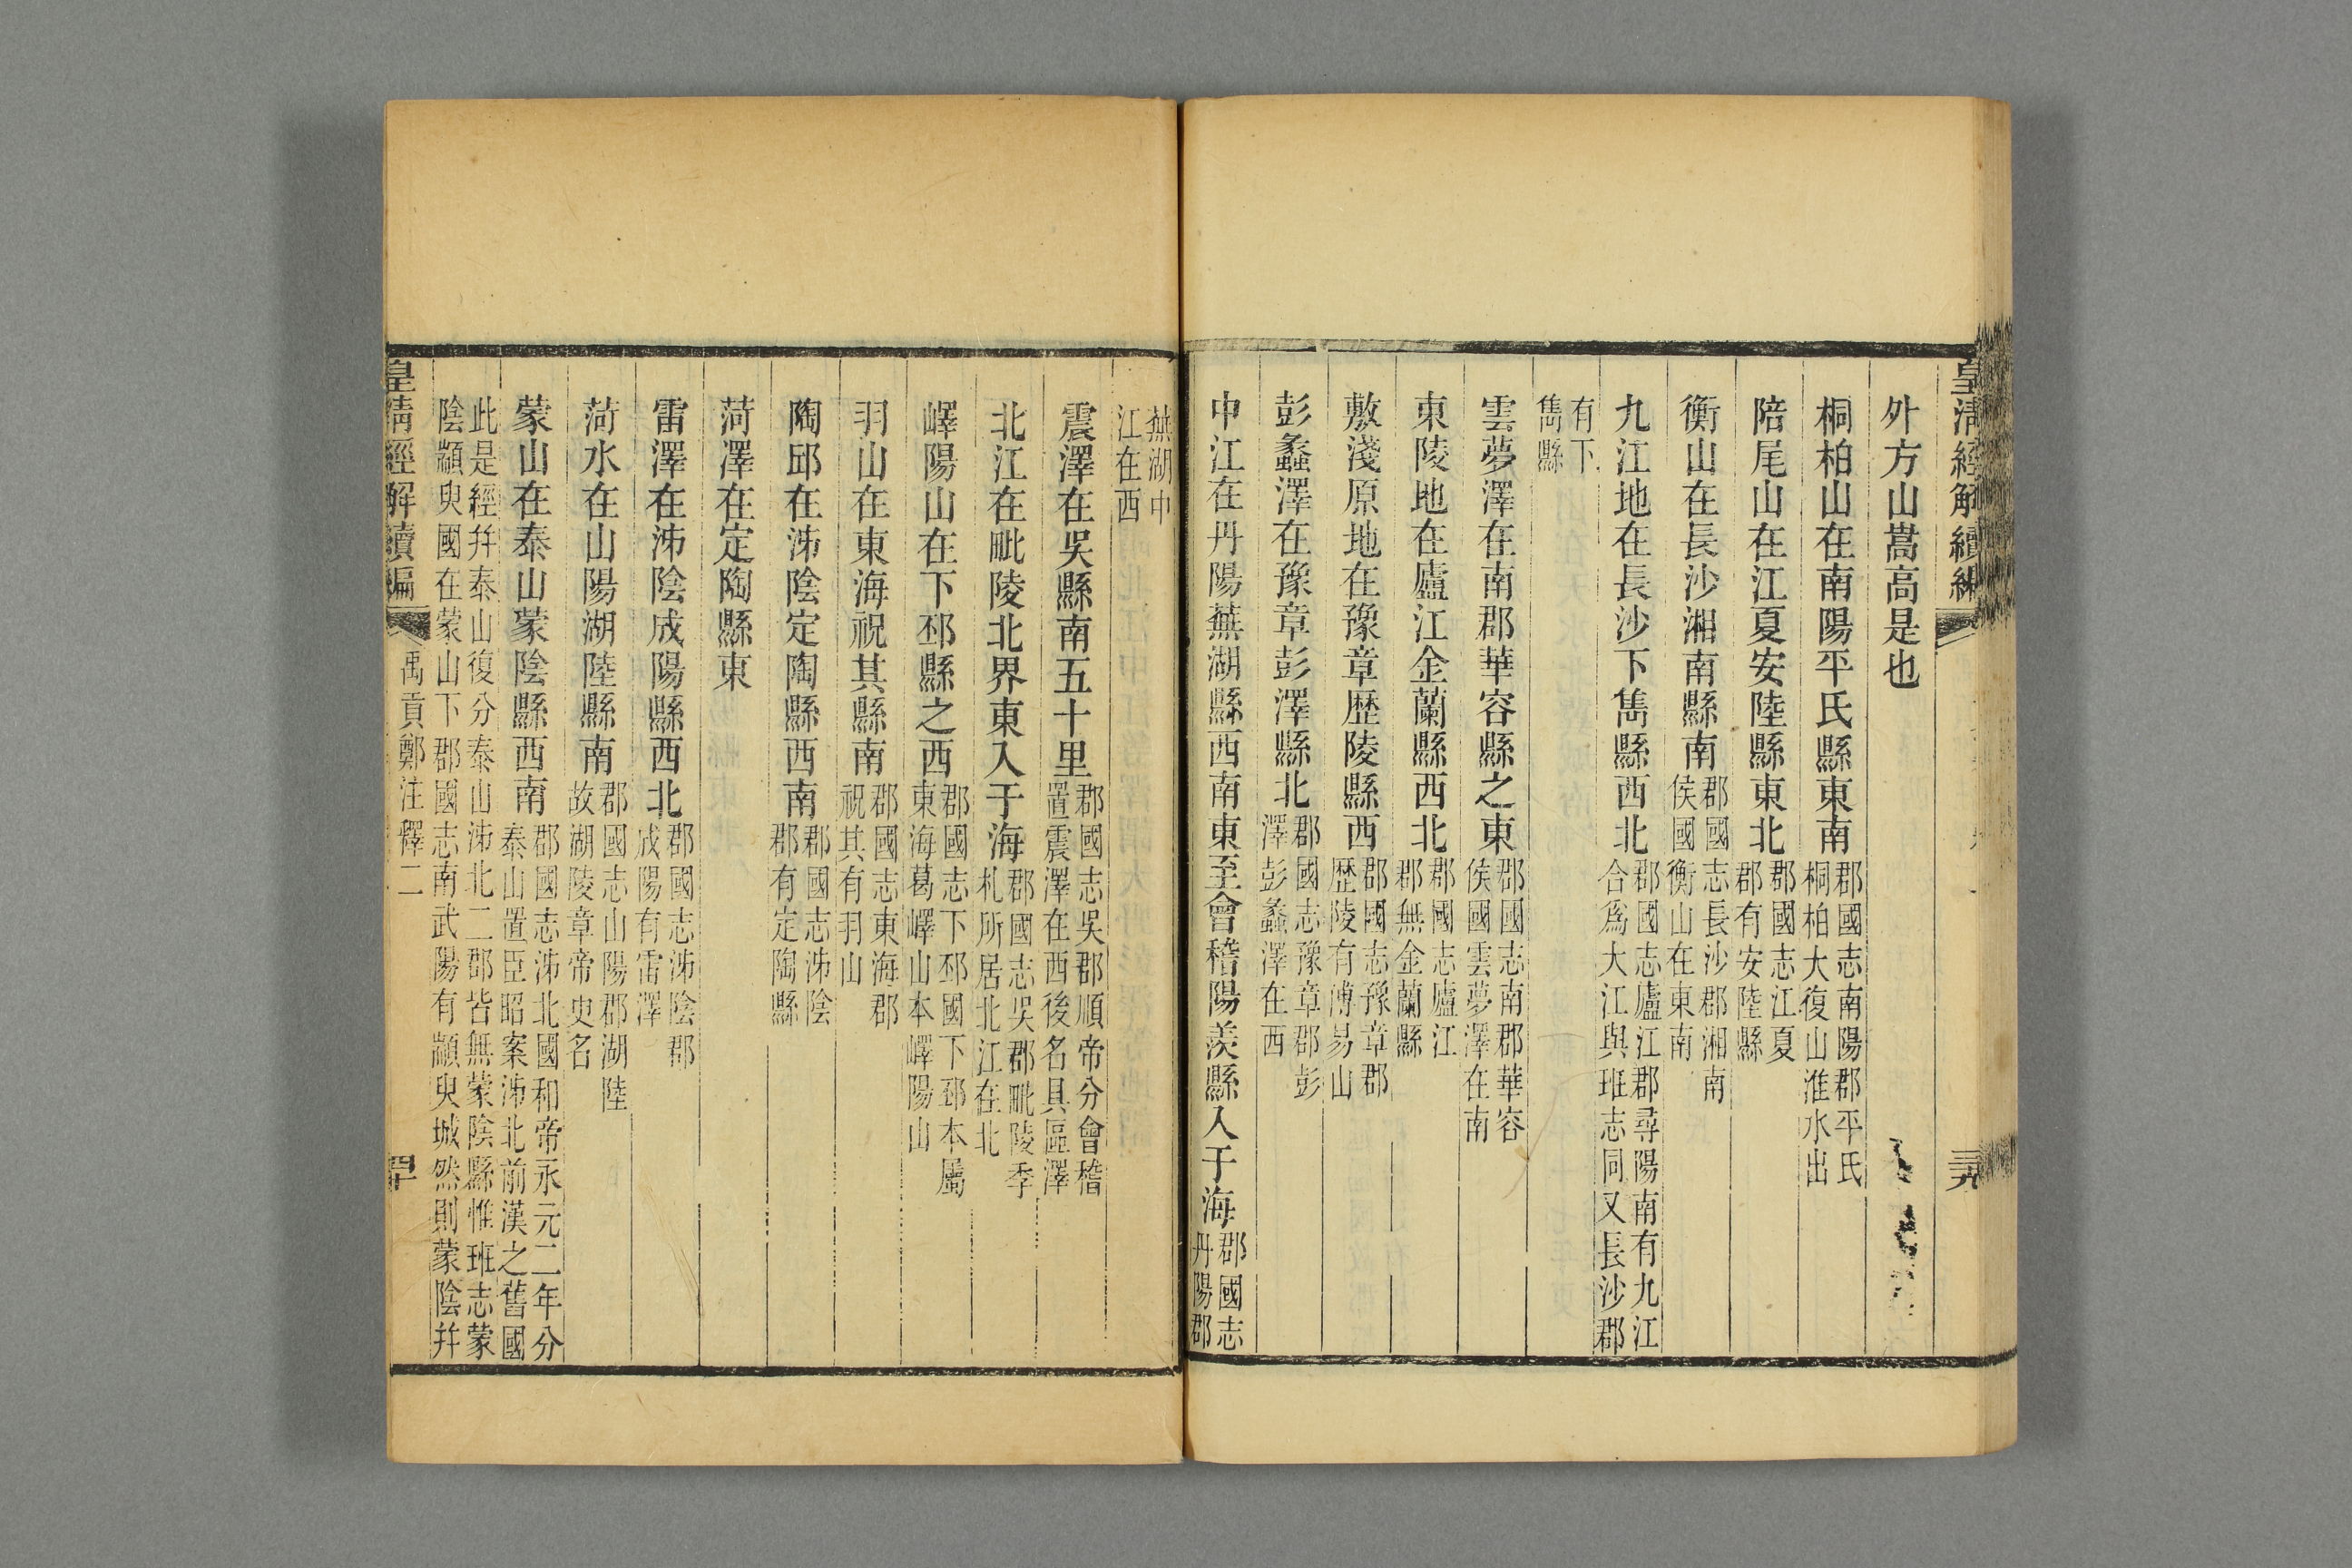 皇清經解續編
外方山嵩高是也
桐柏山在南陽平氏縣東南郡國志南陽郡平氏桐柏大復山淮水出
陪尾山在江夏安陸縣東北郡國志江夏郡有安陸縣
衡山在長沙湘南縣南郡國志長沙郡湘南侯國衡山在東南
九江地在長沙下雋縣西北郡國志廬江郡尋陽南有九江合爲大江與班志同又長沙郡
有下雋縣
雲夢澤在南郡華容縣之東郡國志南郡華容侯國雲夢澤在南
東陵地在廬江金蘭縣西北郡國志廬江郡無金蘭縣
敷淺原地在豫章歷陵縣西郡國志豫章郡歷陵有傅易山
彭蠡澤在豫章彭澤縣北郡國志豫章郡彭澤彭蠡澤在西
中江在丹陽蕪湖縣西南東至會稽陽羨縣入于海郡國志丹陽郡
蕪湖中江在西
震澤在吳縣南五十里郡國志吳郡順帝分會稽置震澤在西後名具區澤
北江在毗陵北界東入于海郡國志吳郡毗陵季札所居北江在北
嶧陽山在下邳縣之西郡國志下邳國下邳本屬東海葛嶧山本嶧陽山
羽山在東海祝其縣南郡國志東海郡祝其有羽山
陶邱在泲陰定陶縣西南郡國志泲陰郡有定陶縣
菏澤在定陶縣東
雷澤在泲陰成陽縣西北郡國志泲陰郡成陽有雷澤
菏水在山陽湖陸縣南郡國志山陽郡湖陸故湖陵章帝史名
蒙山在泰山蒙陰縣西南郡國志泲北國和帝永元二年分泰山置臣昭案泲北前漢之舊國
此是經幷泰山復分泰山泲北二郡皆無蒙陰縣惟班志蒙陰顓臾國在蒙山下郡國志南武陽有顓臾城然則蒙陰幷
皇清經解續編 禹貢鄭注釋二